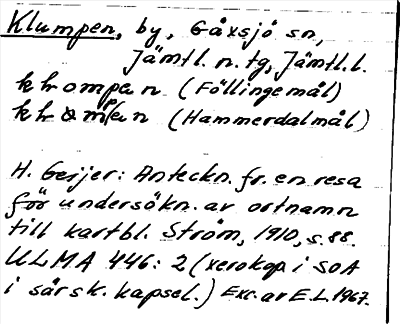 Klumpen, by, Gåxsjö sn,
Jämtl. n. tg, Jämtl. l.
(Föllingemål)
(Hammerdalmål)
H. Geijer: Anteckn. fr. en resa
för undersökn. av ortnamn
till kartbl. Ström, 1910, s. 88.
ULMA 446: 2 (xerokop. i SOA
i särsk. kapsel.) Exc. av E.L. 1967.